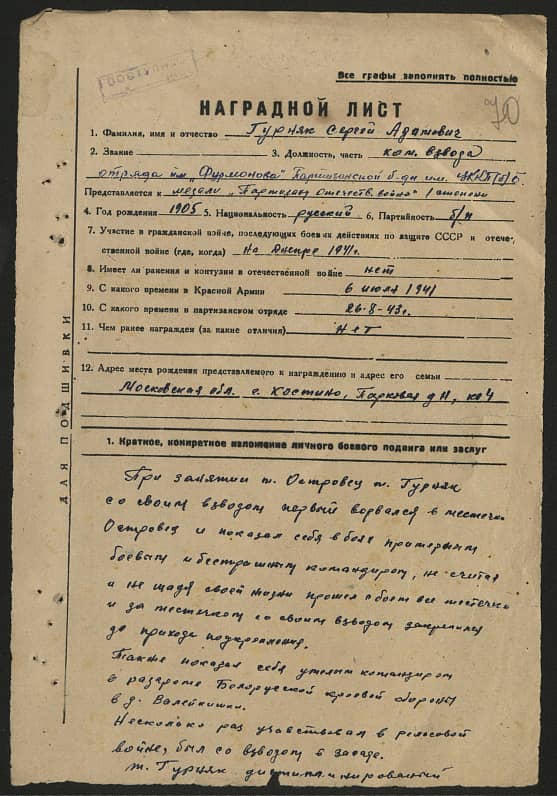 Все графы заполнять полностью
70
НАГРАДНОЙ ЛИСТ
1. Фамилия, имя и отчество Гурняк Сергей Адамович
2. Звание 3. Должность, часть ком. взвода
отряда им. „Фурмонова" Партизанской б-ды им. ЦККП(б)Б
Представляется к медали „Партизану отечеств. войны" 1 степени
4. Год рождения 1905 5. Национальность русский 6. Партийность б/п
7. Участие в гражданской войне, последующих боевых действиях по защите СССР и отече-
ственной войне (где, когда) На Днепре 1941г.
8. Имеет ли ранения и контузии в отечественной войне нет
9. С какого времени в Красной Армии 6 июля 1941
10. С какого времени в партизанском отряде 26-8-43г.
11. Чем ранее награжден (за какие отличия) Нет
12. Адрес места рождения представляемого к награждению и адрес его семьи
Московская обл. с. Костино, Парковая д
ДЛЯ ПОДШИВКИ
1. Краткое, конкретное изложение личного боевого подвига или заслуг
При занятии м. Островец т. Гурняк
со своим взводом первый ворвался в местечко
Островец и показал себя в бою примерным
боевым и бесстрашным командиром, не считая
и не щадя своей жизни прошел с боем все местечко
и за местечком со своим взводом закрепился
до прихода подкрепления.
Также показал себя умелым командиром
в разгроме Белорусской краевой обороны
в д. Валейкишки.
Несколько раз участвовал в рельсовой
войне, был со взводом в засаде.
т. Гурняк дисциплинированный